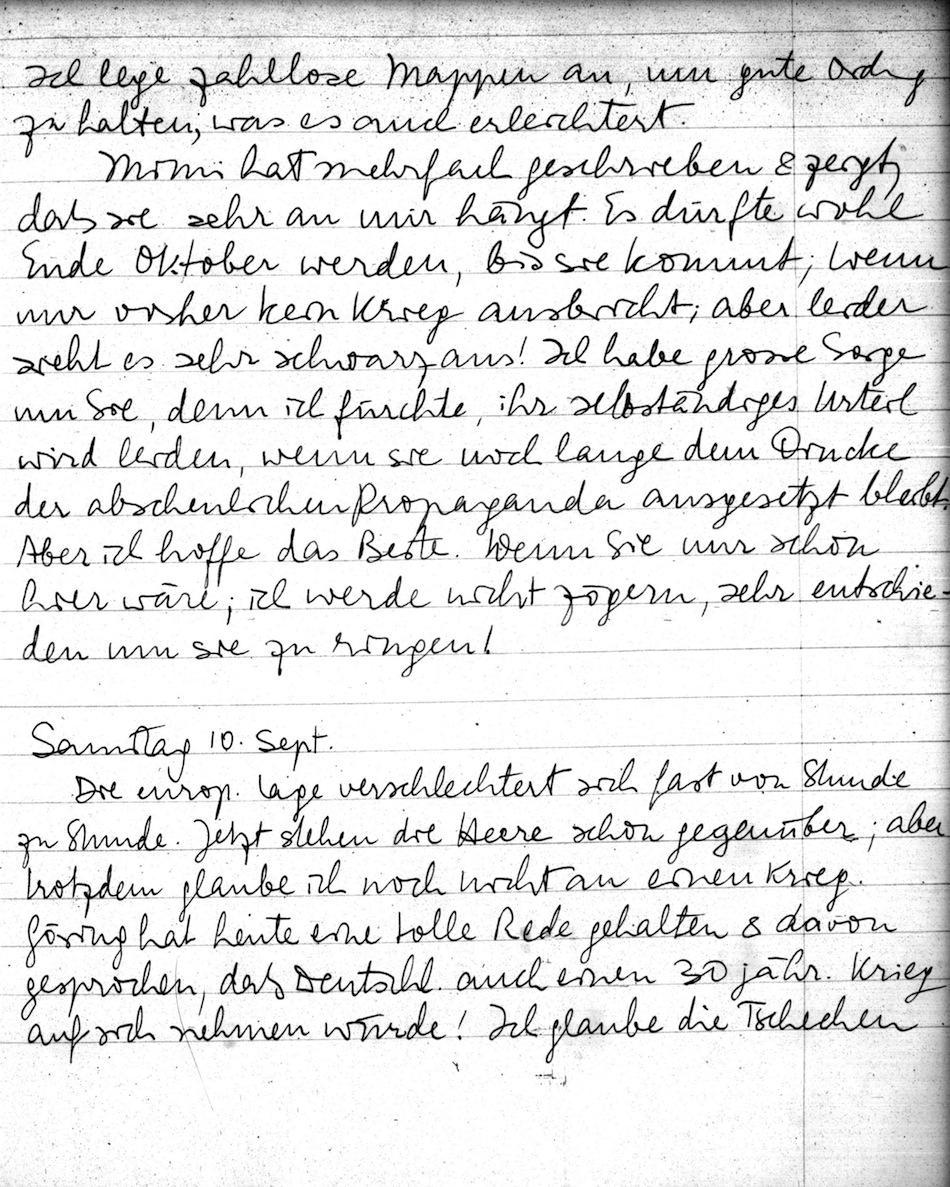 Ich lege zahllose Mappen an, um gute Ordng
zu halten, was es auch erleichtert.
Mimi hat mehrfach geschrieben & zeigt,
daß sie sehr an mir hängt. Es dürfte wohl
Ende Oktober werden, bis sie kommt; wenn
nur vorher kein Krieg ausbricht; aber leider
sieht es sehr schwarz aus! Ich habe grosse Sorge
um Sie, denn ich fürchte, ihr selbständiges Urteil
wird leiden, wenn sie noch lange dem Drucke
der abscheulichen Propaganda ausgesetzt bleibt.
Aber ich hoffe das Beste. Wenn Sie nur schon
hier wäre; ich werde nicht zögern, sehr entschie-
den um sie zu ringen!
Samstag 10. Sept.
Die europ. Lage verschlechtert sich fast von Stunde
zu Stunde. Jetzt stehen die Heere schon gegenüber; aber
trotzdem glaube ich noch nicht an einen Krieg.
Göring hat heute eine tolle Rede gehalten & davon
gesprochen, daß Deutschl. auch einen 30 jähr. Krieg
auf sich nehmen würde! Ich glaube die Tschechen